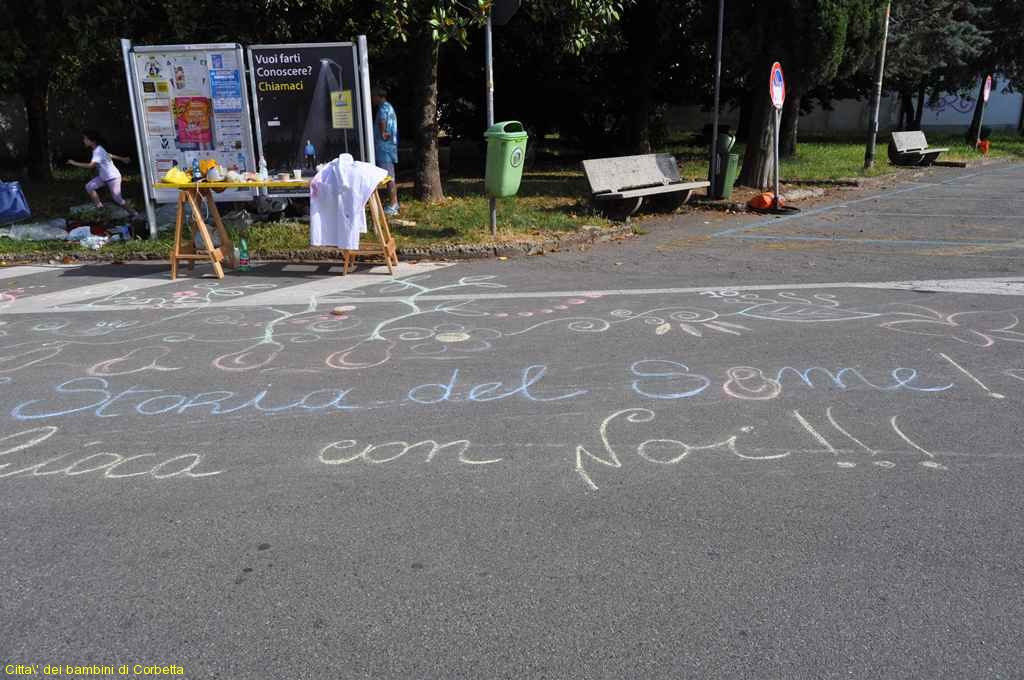 Vuoi farti
Conoscere?
Chiamaci
Storia del Seme!
Gioca con Noi!!!
Citta\' dei bambini di Corbetta